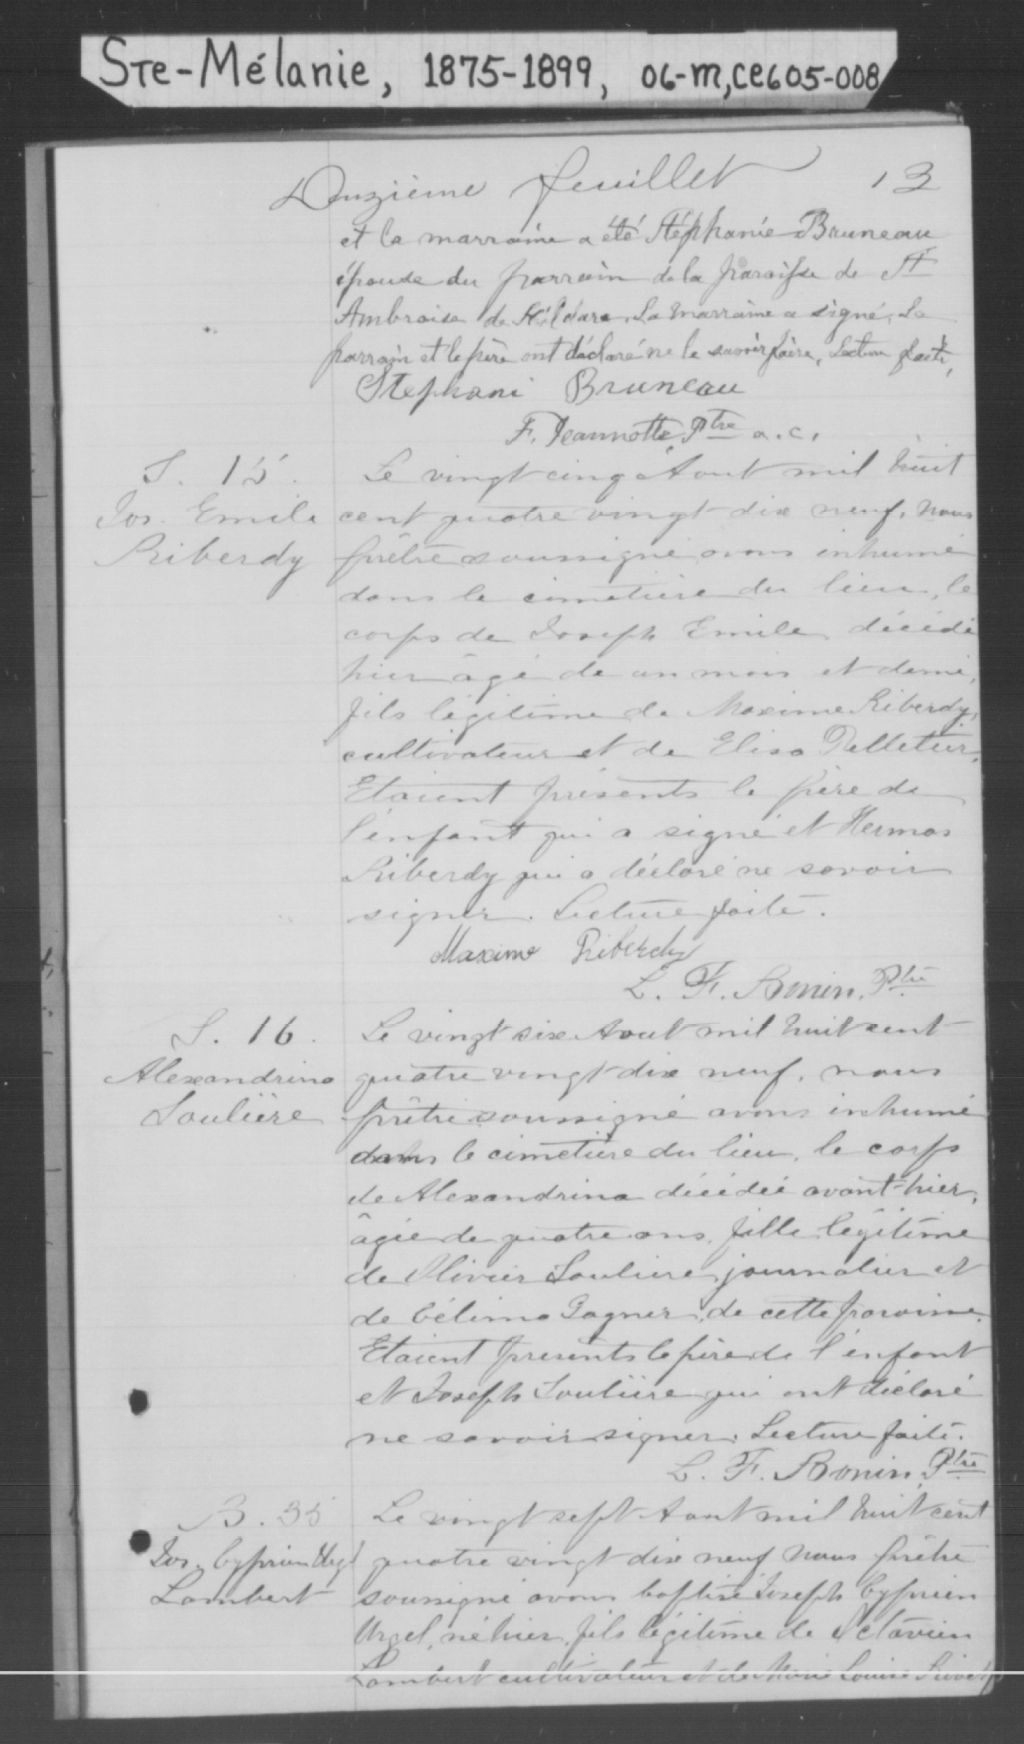 Ste-Mélanie, 1875-1899, 06-M,CE605-008
Douzième feuillet 13
et la marraine a été Stéphanie Bruneau
épouse du parrain de la paroisse de St
Ambroise de Kildare. La marraine a signé. Le
parrain et le père ont déclaré ne le savoir faire. Lecture faite,
Stephani Bruneau
F. Jeannotte Ptre a.c.
S. 15.
Jos. Emile
Riberdy
Le vingt cinq Aout mil huit
cent quatre vingt dix neuf, nous
prêtre soussigné avons inhumé
dans le cimetière du lieu, le
corps de Joseph Emile, décédé
hier âgé de un mois et demi,
fils légitime de Maxime Riberdy,
cultivateur et de Elisa Pelletier.
Etaient présents le père de
l'enfant qui a signé et Hermas
Riberdy qui a déclaré ne savoir
signer. Lecture faite.
Maxime Riberdy
L. F. Bonin, Ptre
S. 16.
Alexandrina
Soulière
Le vingt six Aout mil huit cent
quatre vingt dix neuf, nous
prêtre soussigné avons inhumé
dans le cimetière du lieu, le corps
de Alexandrina décédée avant-hier,
âgée de quatre ans, fille légitime
de Olivier Soulière journalier et
de Célima Gagner, de cette paroisse.
Etaient présents le père de l'enfant
et Joseph Soulière qui ont déclaré
ne savoir signer. Lecture faite.
L. F. Bonin, Ptre
B. 35
Jos. Cyprien Urgel
Lambert
Le vingt sept Aout mil huit cent
quatre vingt dix neuf nous prêtre
soussigné avons baptisé Joseph Cyprien
Urgel, né hier, fils légitime de Octavien
Lambert cultivateur et de Marie Louise Rivest